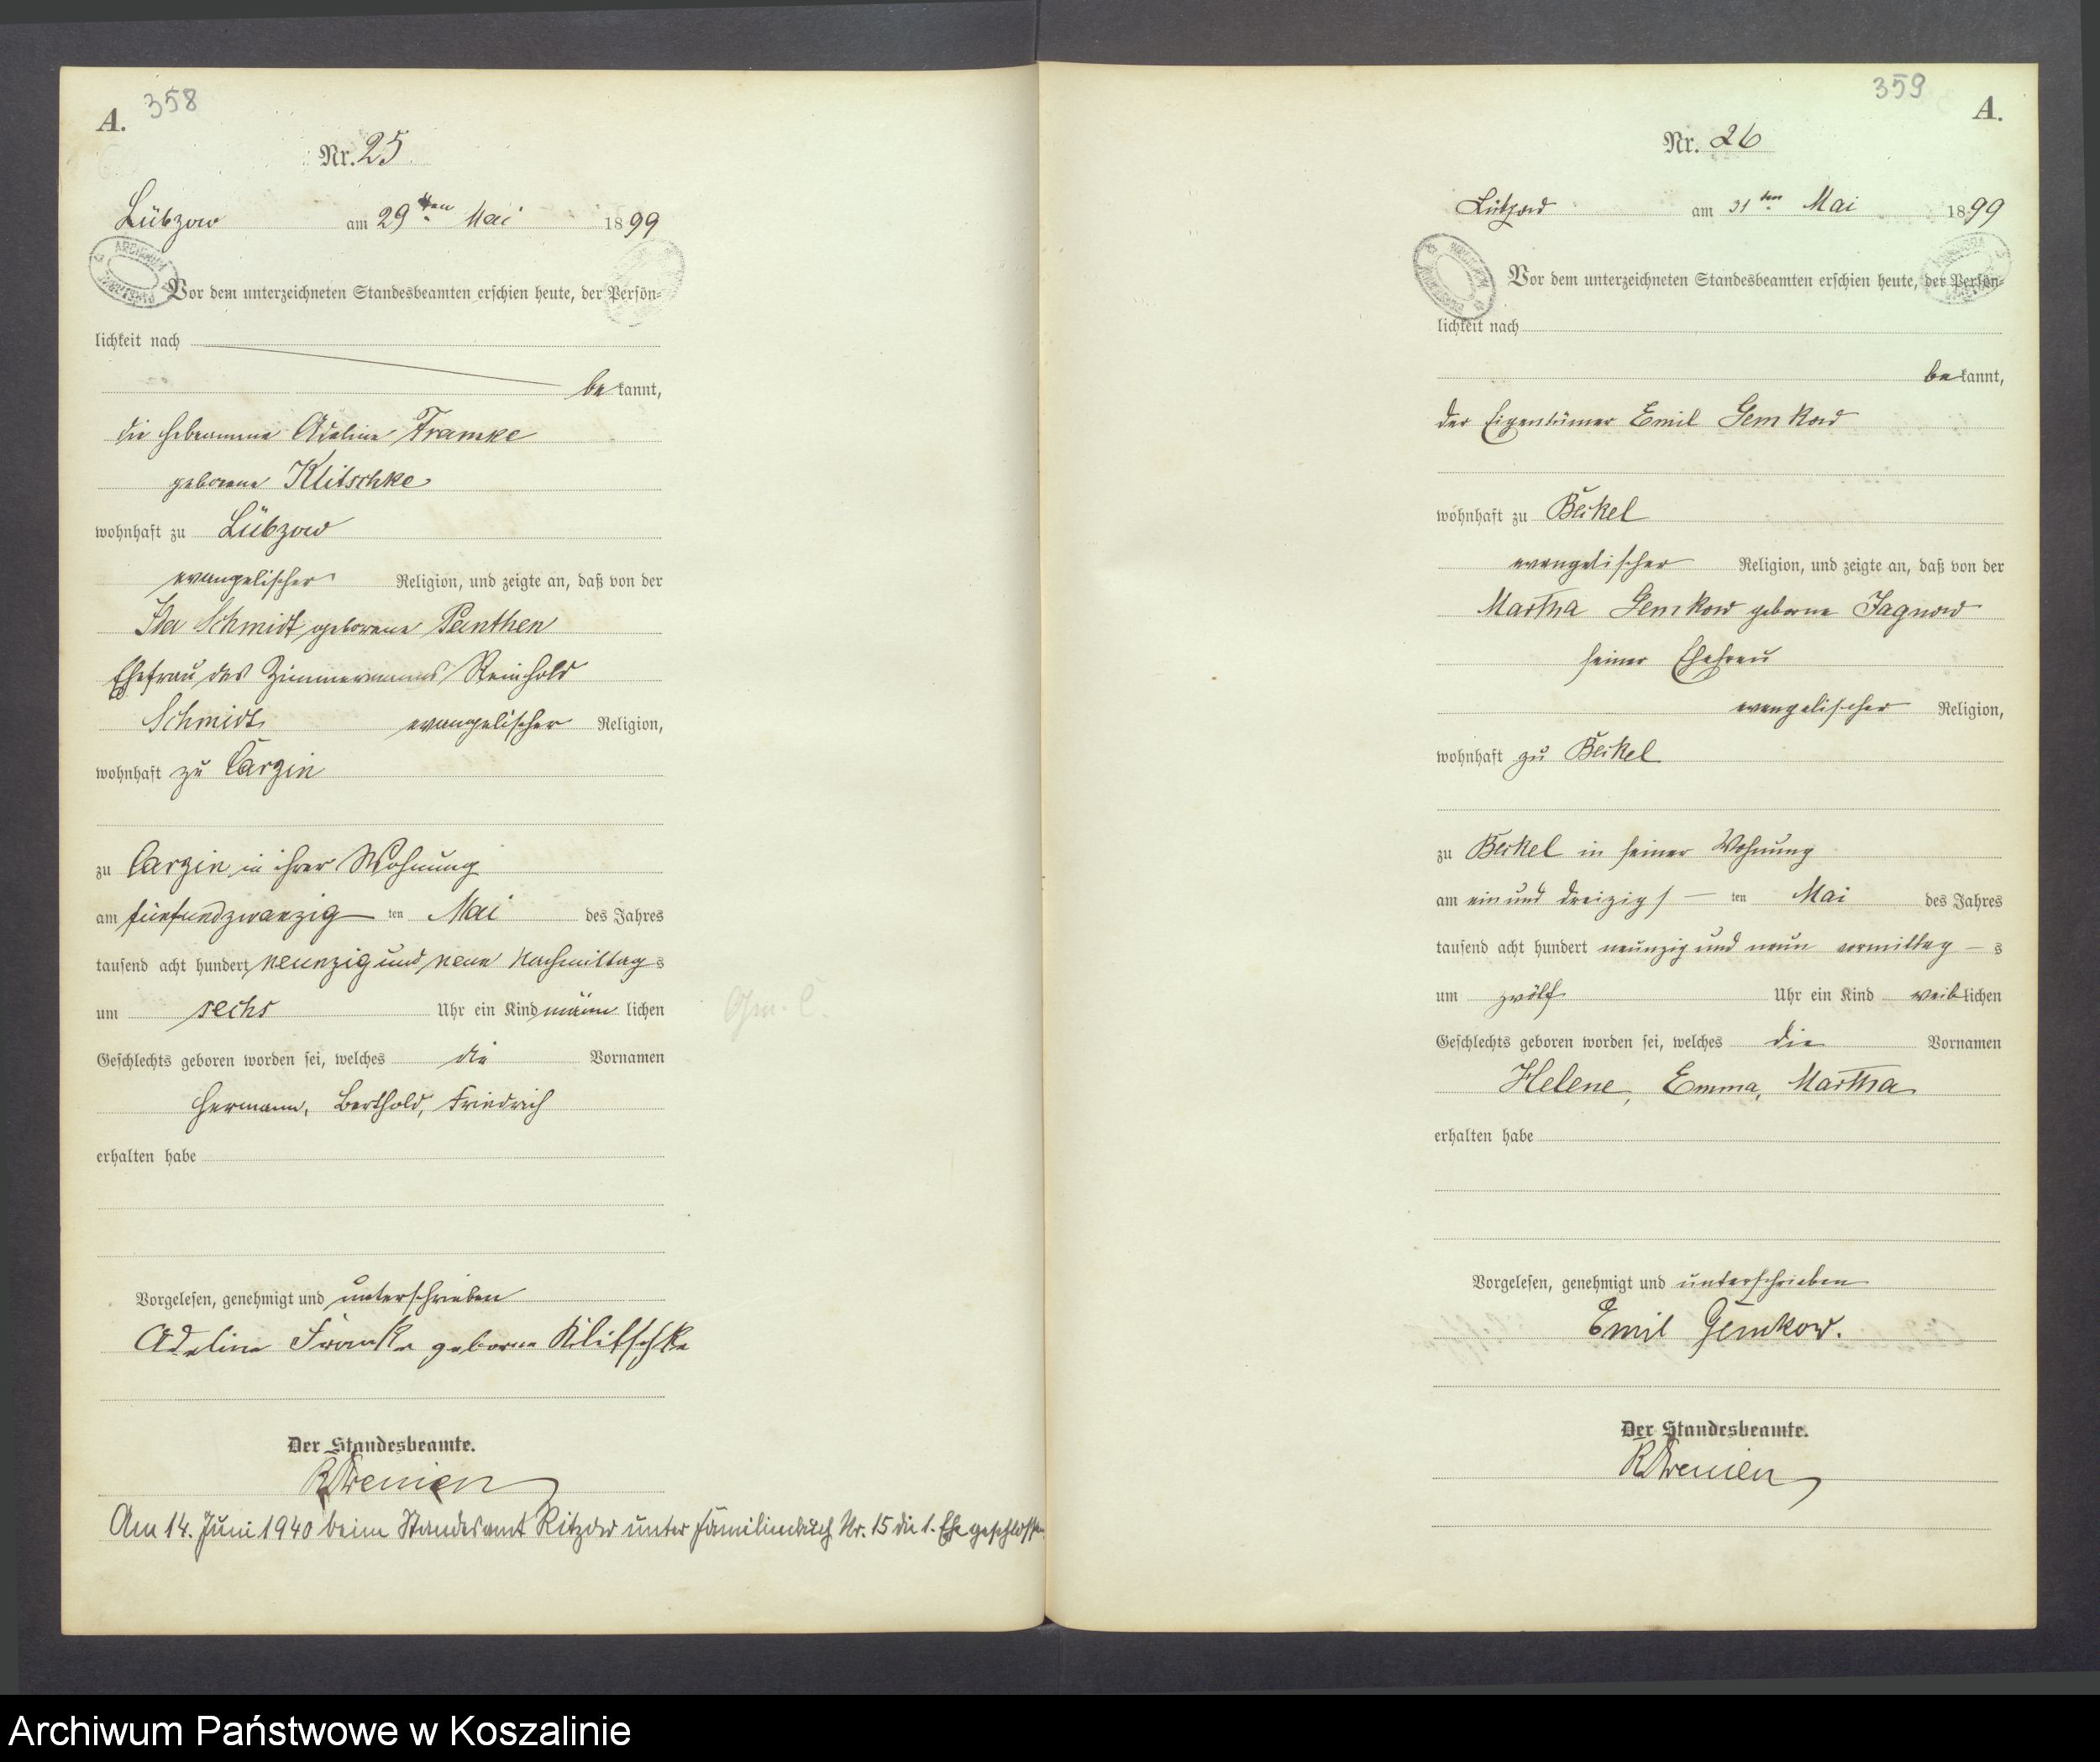 358
A.
Nr. 25
Lübzow am 29ten Mai 1899
Vor dem unterzeichneten Standesbeamten erschien heute, der Persön=
lichkeit nach
be kannt,
die Hebeamme Adeline Framke
geborene Klitschke
wohnhaft zu Lübzow
evangelischer Religion, und zeigte an, daß von der
Ida Schmidt geborene Panthen
Ehefrau des Zimmermanns Reinhold
Schmidt evangelischer Religion,
wohnhaft zu Carzin
zu Carzin in ihrer Wohnung
am fünfundzwanzig ten Mai des Jahres
tausend acht hundert neunzig und neun Nachmittag s
um sechs Uhr ein Kind männ lichen
Geschlechts geboren worden sei, welches die Vornamen
Hermann, Berthold, Friedrich
erhalten habe
Vorgelesen, genehmigt und unterschrieben
Adeline Framke geborne Klitschke
Der Standesbeamte.
Am 14. Juni 1940 beim Standesamt Ritzow unter Familienbuch Nr. 15 die 1. Ehe geschlossen
359
A.
Nr. 26
Lübzow am 31ten Mai 1899
Vor dem unterzeichneten Standesbeamten erschien heute, der Persön=
lichkeit nach
be kannt,
der Eigentümer Emil Gemkow
wohnhaft zu Beckel
evangelischer Religion, und zeigte an, daß von der
Martha Gemkow geborne Jagnow
seiner Ehefrau
evangelischer Religion,
wohnhaft zu Beckel
zu Beckel in seiner Wohnung
am ein und dreizigs ten Mai des Jahres
tausend acht hundert neunzig und neun vormittag s
um zwölf Uhr ein Kind weib lichen
Geschlechts geboren worden sei, welches die Vornamen
Helene, Emma, Martha
erhalten habe
Vorgelesen, genehmigt und unterschrieben
Emil Gemkow.
Der Standesbeamte.
Archiwum Państwowe w Koszalinie